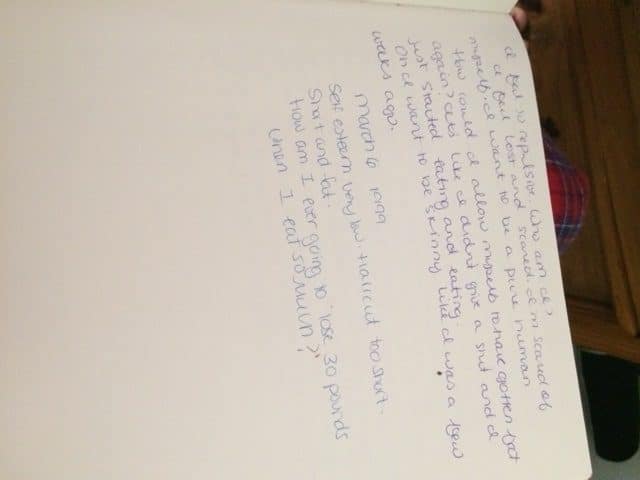 I feel so repulsive. Who am I?
I feel lost and scared. I'm scared of
myself. I want to be a pure human
How could I allow myself to have gotten fat
again? Its like I didn't give a shit and I
just started eating and eating.
Oh I want to be skinny like I was a few
weeks ago.
March 6 1999
Self esteem very low. Haircut too short.
Short and fat.
How am I ever going to lose 30 pounds
when I eat so much?